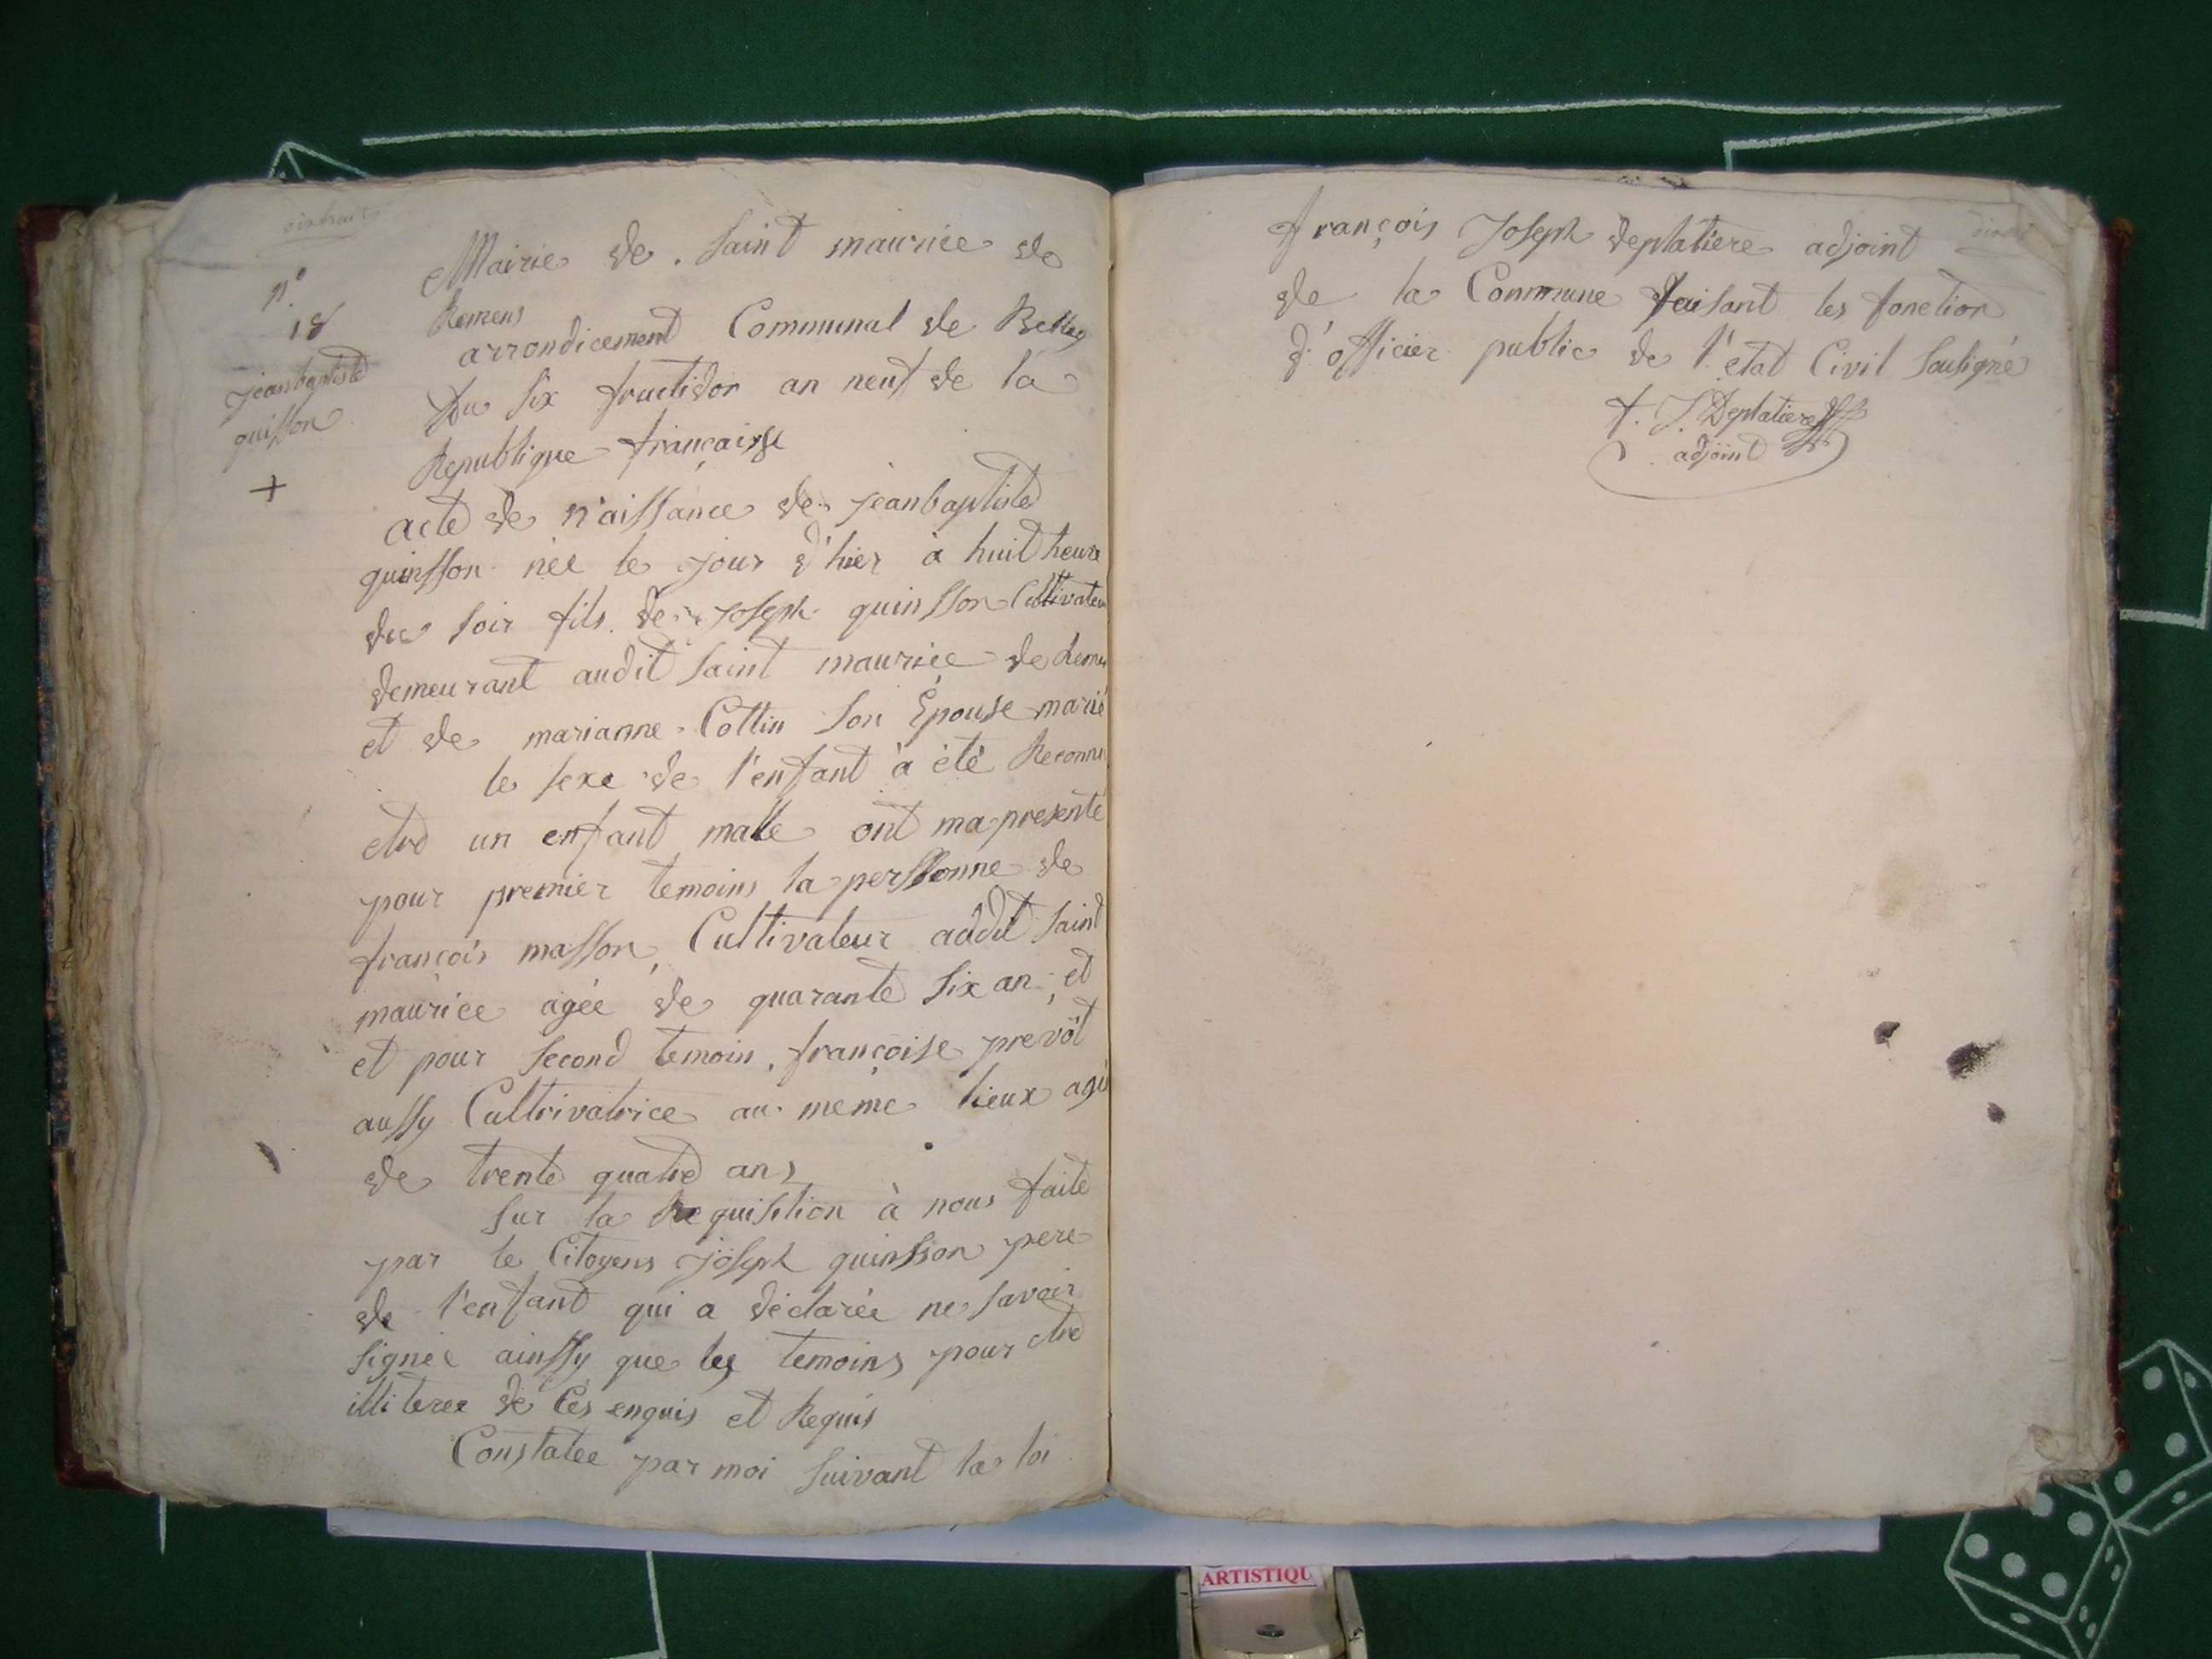 n°
18
jeanbaptiste
quisson
+
Mairie de Saint maurice de
Remens
arrondicement Communal de Belley
Du Six fructidor an neuf de la
Republique françaisse
acte de n'aissance de jeanbaptiste
quinsson née le jour d'hier à huit heure
du soir fils de joseph quinsson Cultivateur
demeurant audit Saint maurice de Remens
et de marianne Cottin Son Épouse marié
le sexe de l'enfant à été Reconnu
etre un enfant malle ont ma presenté
pour premier temoins la perssonne de
françois masson, Cultivateur addit Saint
maurice agée de quarante Six an, et
et pour Second temoin, françoise prevôt
aussy Cultrivatrice au meme lieux agé
de trente quatre ans
Sur la Requisition à nous faite
par le Citoyens joseph quinsson pere
de l'enfant qui a déclarée ne savoir
signée ainssy que les temoins pour etre
illiteree de Ces enquis et Requis
Constatee par moi Suivant la loi
françois Joseph deplatiere adjoint
de la Commune faisant les fonction
d'officier public de l'etat Civil Sousigné
f. J. Deplatiere
adjoint
ARTISTIQU